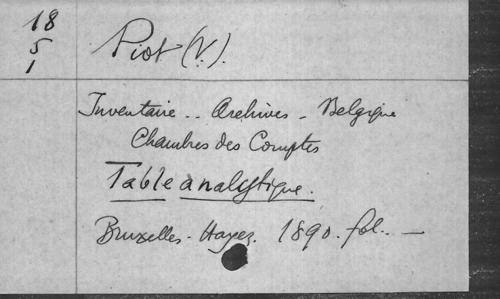 18
5
1
Piot (V.).
Inventaire .. Archives - Belgique
Chambres des Comptes
Table analytique.
Bruxelles - Hayez. 1890. fol. —